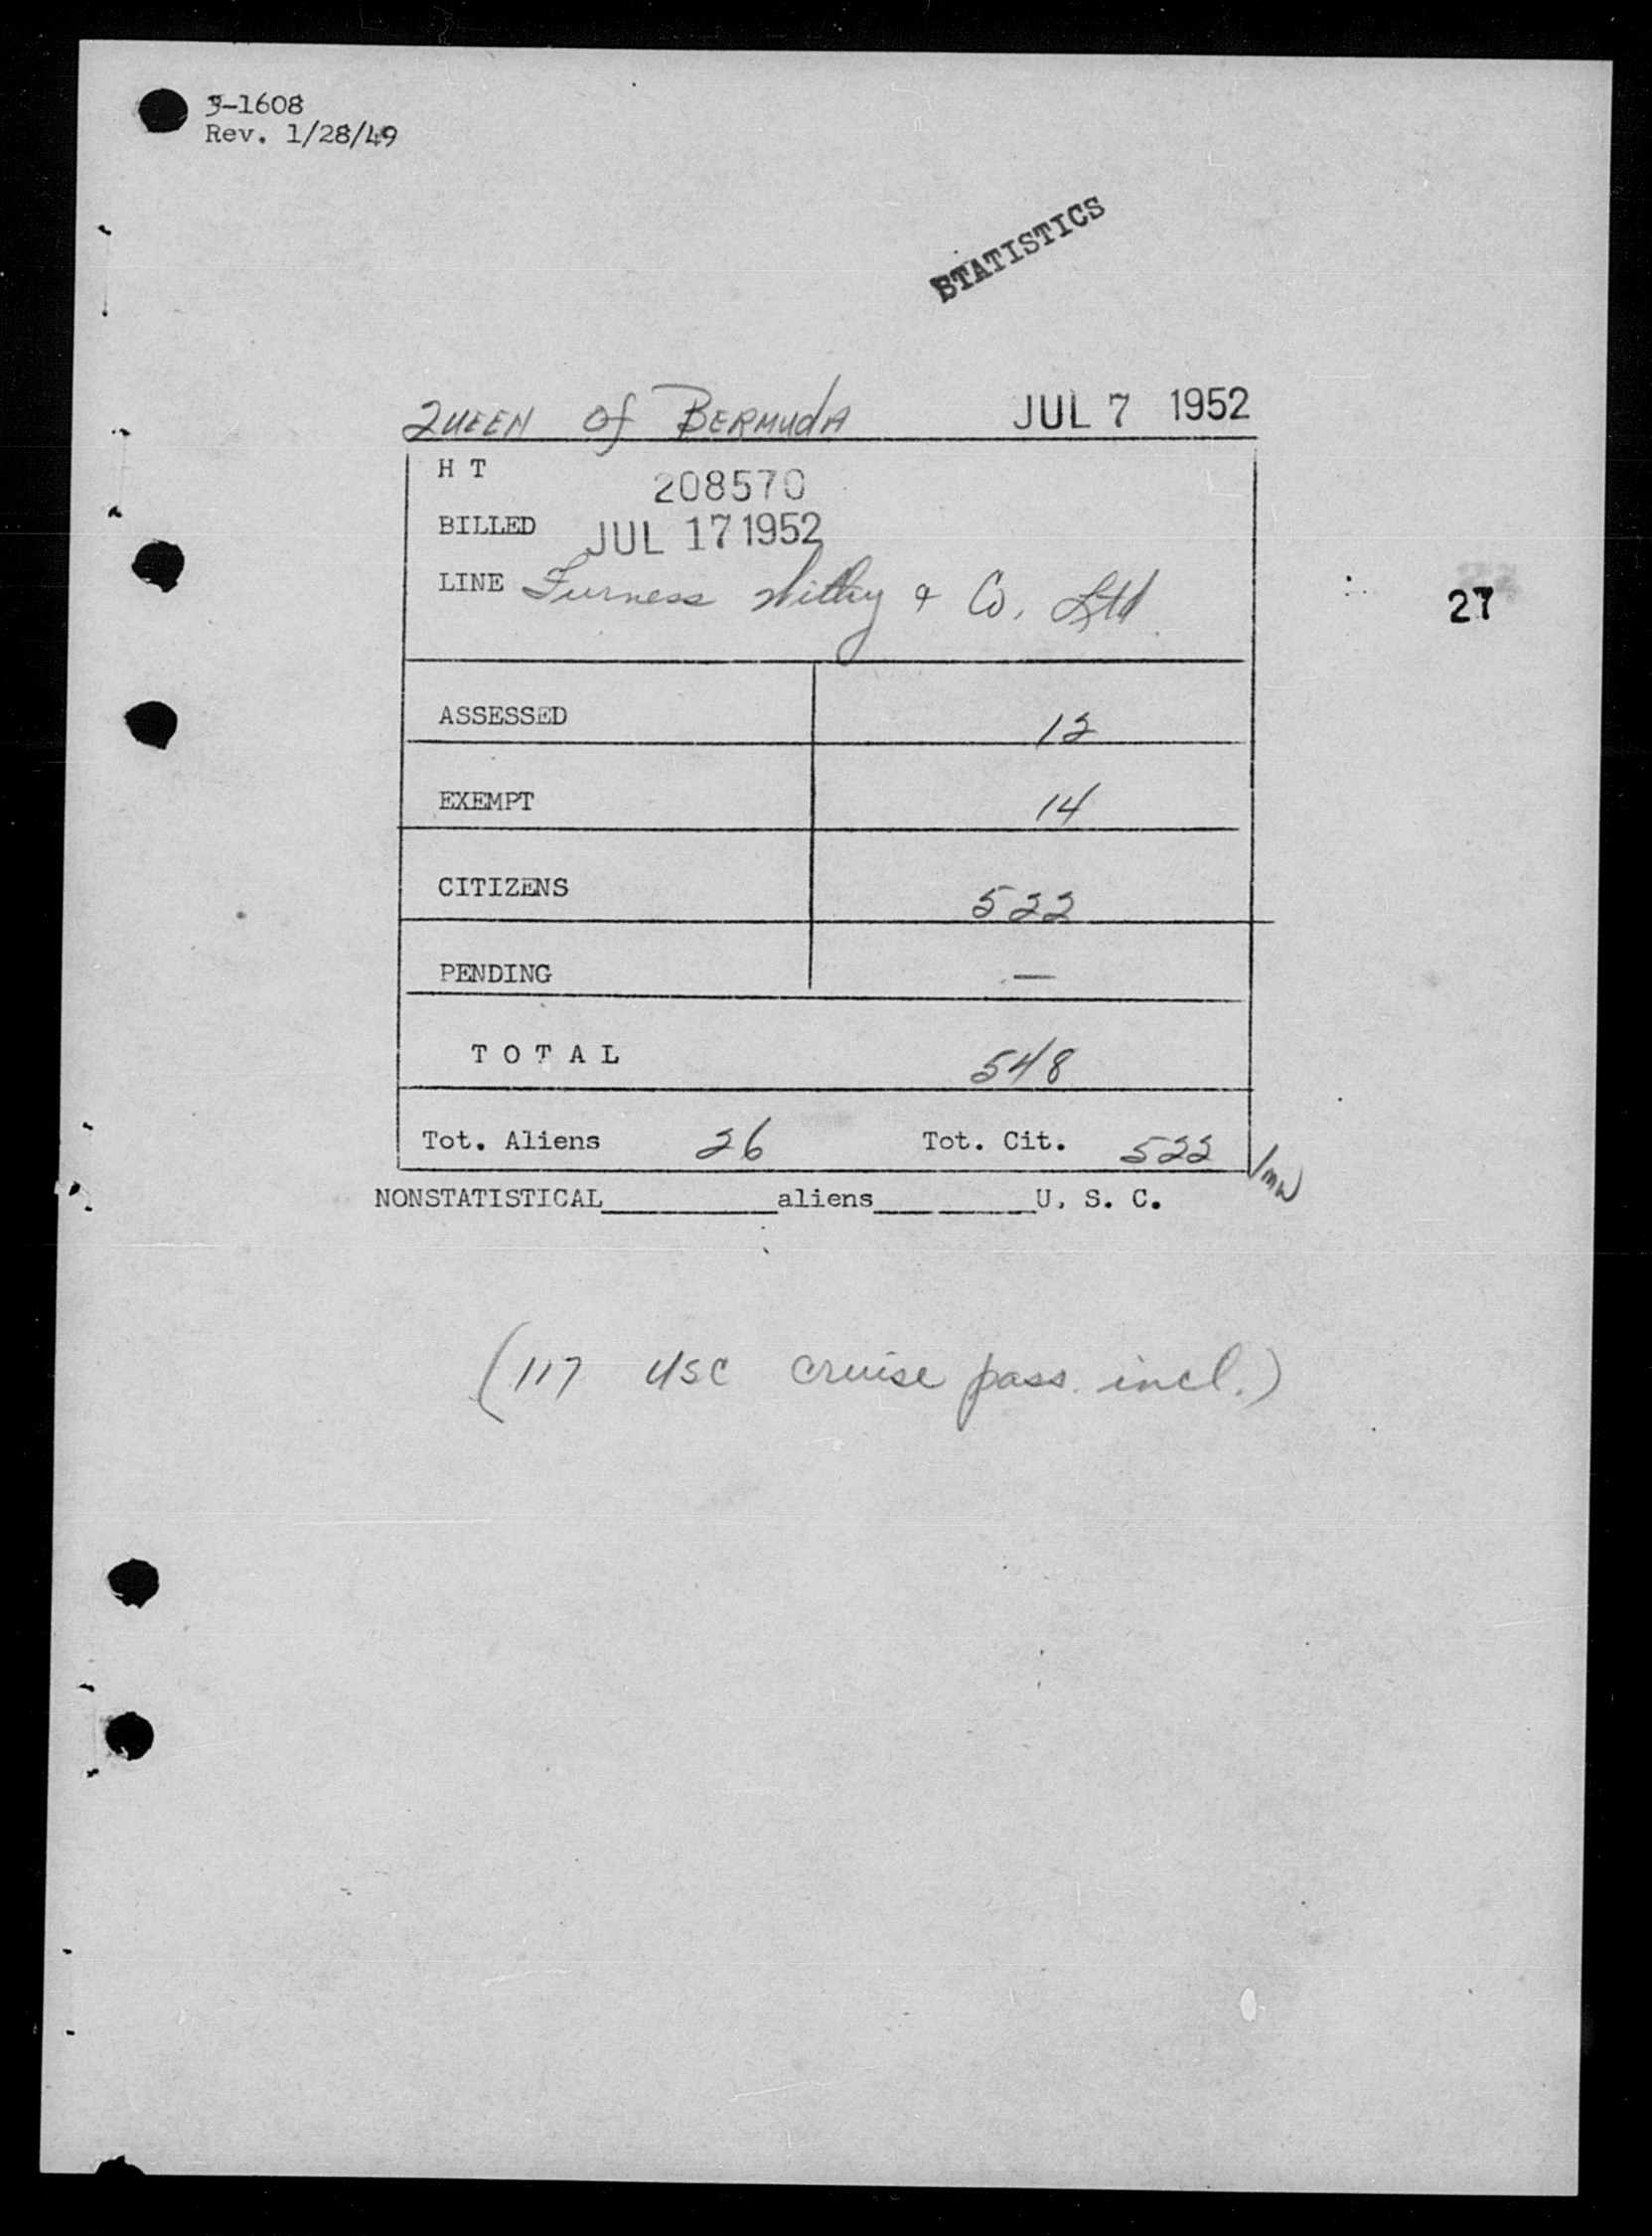 3-1608
Rev. 1/28/49
STATISTICS
QUEEN of BERMUDA JUL 7 1952
H T 208570
BILLED JUL 17 1952
LINE Furness Withy & Co. Ltd.
27
ASSESSED 12
EXEMPT 14
CITIZENS 522
PENDING —
T O T A L 548
Tot. Aliens 26 Tot. Cit. 522
NONSTATISTICAL__________aliens__________U. S. C.
(117 USC cruise pass. incl.)